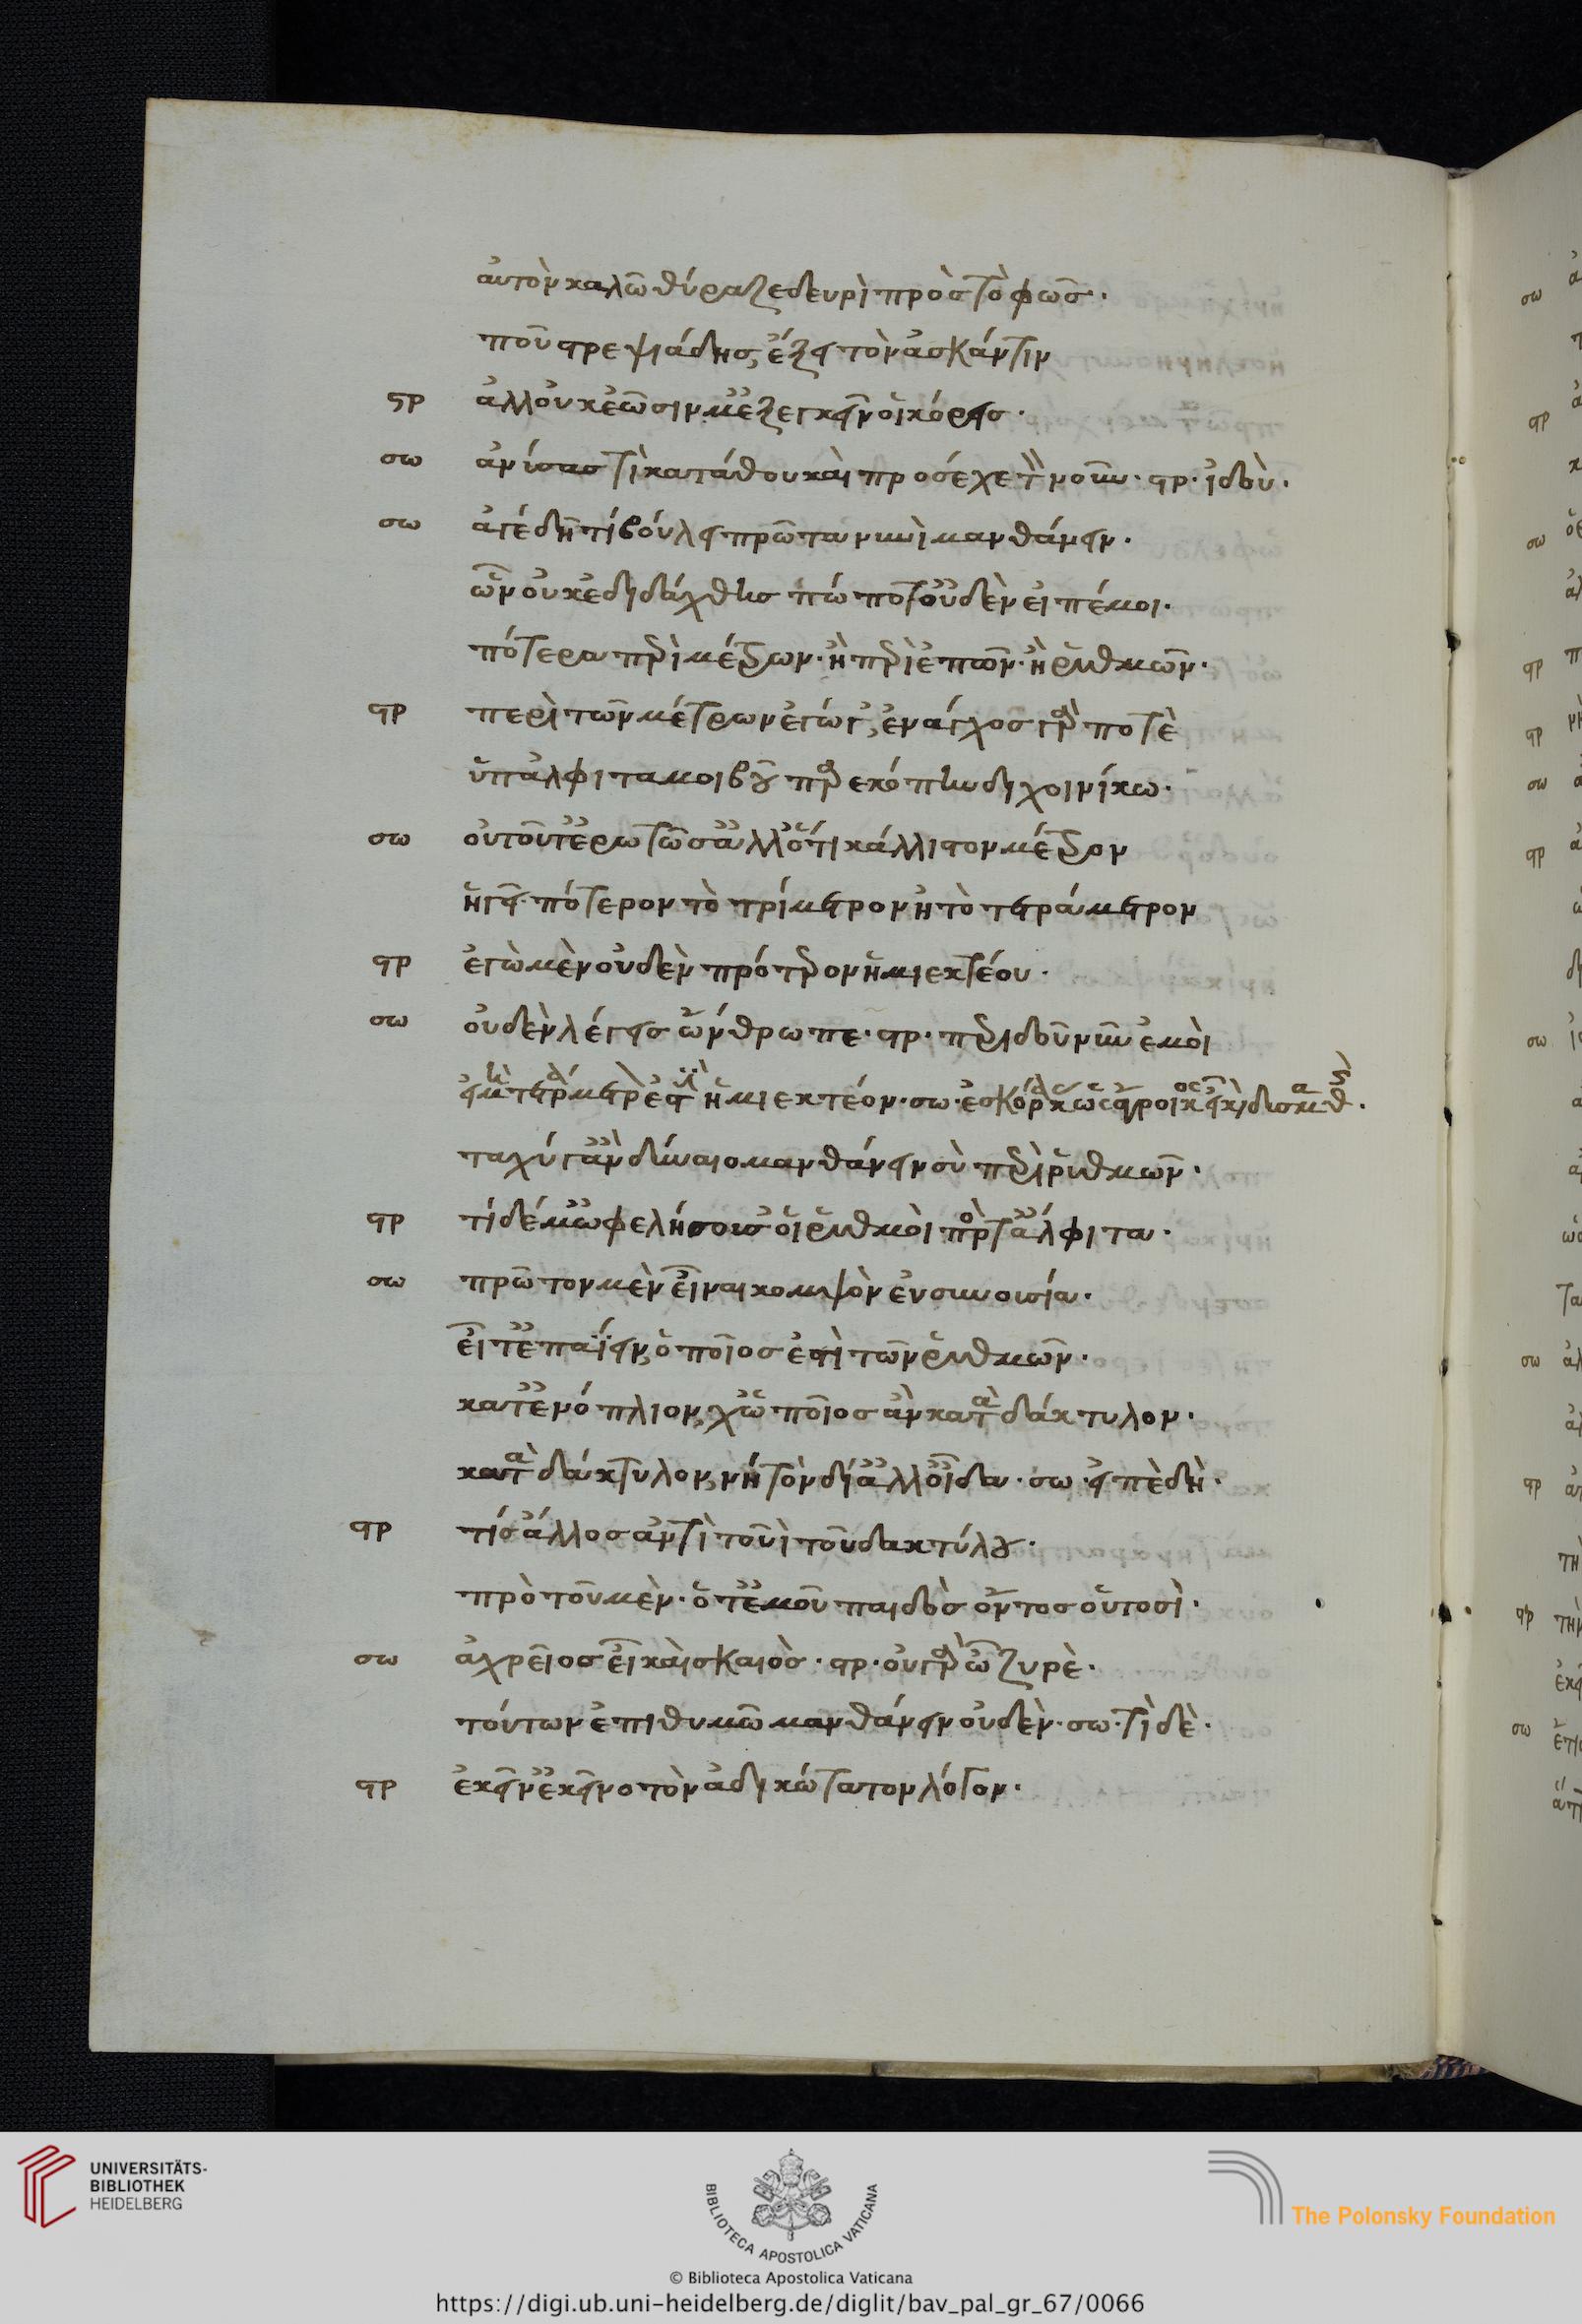 αὐτὸν καλῶ θύραζε δευρὶ πρὸς τὸ φῶς.
ποῦ στρεψιάδης, ἔξει τὸν ἀσκάντην
στρ ἀλλ' οὐκ ἐῶσί μ' ἐξενεγκεῖν οἱ κόρεις.
σω ἀνύσας τὶ κατάθου καὶ πρόσέχε τὸν νοῦν. στρ. ἰδοὺ.
σω ἄγε δὴ τί βούλει πρῶτα νυνὶ μανθάνειν.
ὧν οὐκ ἐδιδάχθης πώποτ' οὐδὲν εἰπέ μοι.
πότερα περὶ μέτρων. ἢ περὶ ἐπῶν. ἢ ῥυθμῶν.
στρ περὶ τῶν μέτρων ἐγώγ', ἔναγχος γάρ ποτὲ
ὑπ' ἀλφιταμοιβοῦ παρεκόπην διχοινίκω.
σω οὐ τοῦτ' ἐρωτῶ σ' ἀλλ' ὅτι κάλλιστον μέτρον
ἡγεῖ. πότερον τὸ τρίμετρον ἢ τὸ τετράμετρον
στρ ἐγὼ μὲν οὐδὲν πρότερον ἡμιεκτέου.
σω οὐδὲν λέγεις ὤνθρωπε. στρ. περίδου νῦν ἐμοὶ
εἰ μὴ τετράμετρόν ἐστὶν ἡμιεκτέον. σω. ἐς κόρακας ὡς ἄγροικος εἶ καὶ δυσμαθής.
ταχύ γ' ἂν δύναιο μανθάνειν σὺ περὶ ῥυθμῶν.
στρ τί δέ μ' ὠφελήσουσ' οἱ ῥυθμοὶ πρὸς τἄλφιτα.
σω πρῶτον μὲν εἶναι κομψὸν ἐν συνουσία.
εἶτ' ἐπαΐειν, ὁποῖος ἐστὶ τῶν ῥυθμῶν.
κατ' ἐνόπλιον, χὡποῖος ἂν κατὰ δάκτυλον.
κατὰ δάκτυλον, νὴ τὸν δί' ἀλλ' οἶδα. σω. εἰπὲ δὴ.
στρ τίς ἄλλος ἀντὶ τουῒ τοῦ δακτύλου.
πρὸ τοῦ μὲν. ὅτ' ἐμοῦ παιδὸς ὄντος οὑτοσὶ.
σω ἀχρεῖος εἶ καὶ σκαιὸς. στρ. οὐ γὰρ ὦ ζυρὲ.
τούτων ἐπιθυμῶ μανθάνειν οὐδὲν. σω. τὶ δὲ.
στρ ἐκεῖν' ἐκεῖνο τὸν ἀδικώτατον λόγον.
UNIVERSITÄTS-
BIBLIOTHEK
HEIDELBERG
BIBLIOTECA APOSTOLICA VATICANA
The Polonsky Foundation
© Biblioteca Apostolica Vaticana
https://digi.ub.uni-heidelberg.de/diglit/bav_pal_gr_67/0066